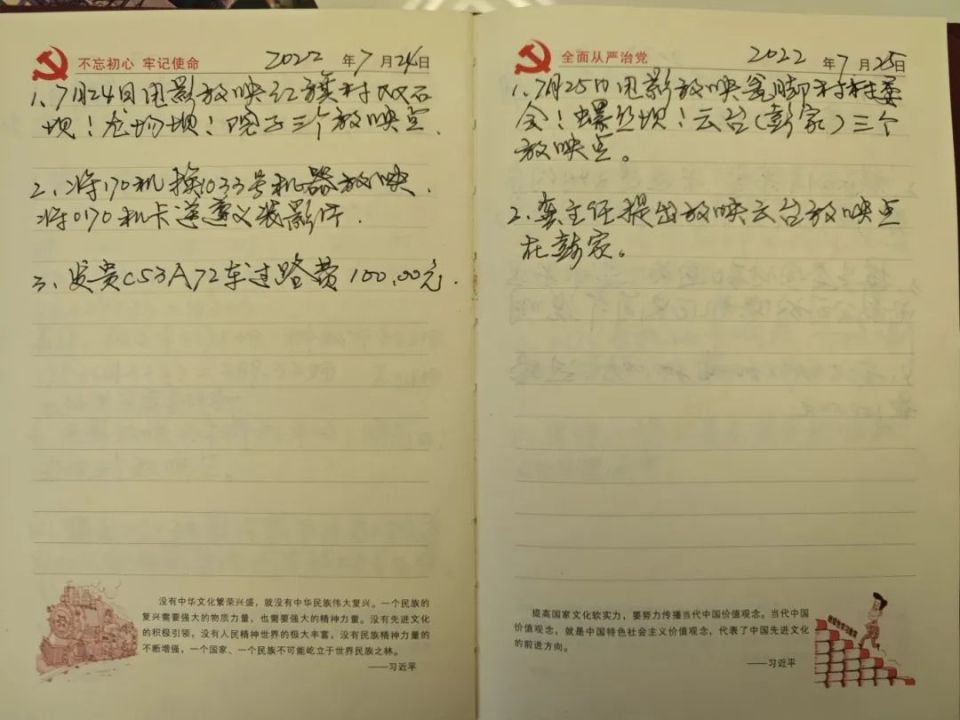 不忘初心 牢记使命 2022 年 7 月 24 日
1、7月24日电影放映红旗村双石
坝！龙场坝！院子三个放映点.
2、将170机换1033号机器放映.
将0170机卡送遵义装影片.
3、发贵C53A72车过路费100.00元.
没有中华文化繁荣兴盛，就没有中华民族伟大复兴。一个民族的
复兴需要强大的物质力量，也需要强大的精神力量。没有先进文化
的积极引领，没有人民精神世界的极大丰富，没有民族精神力量的
不断增强，一个国家、一个民族不可能屹立于世界民族之林。
——习近平
全面从严治党 2022 年 7 月 25 日
1、7月25日电影放映瓮脚村村委
会！螺丝坝！云台(彭家)三个
放映点。
2、娄主任提出放映云台放映点
在彭家。
提高国家文化软实力，要努力传播当代中国价值观念。当代中国
价值观念，就是中国特色社会主义价值观念，代表了中国先进文化
的前进方向。
——习近平